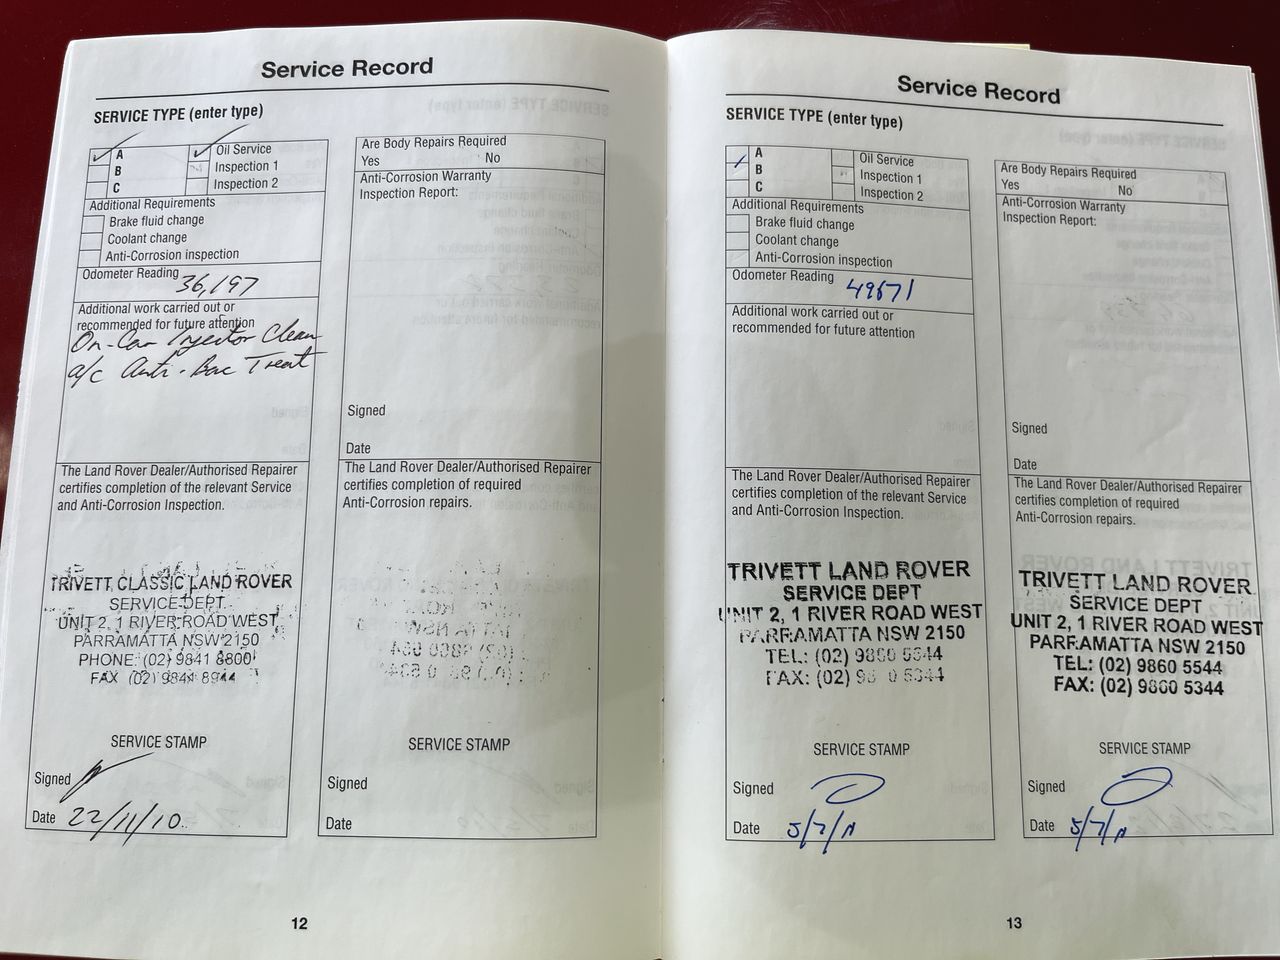 Service Record
SERVICE TYPE (enter type)
A
B
C
Oil Service
Inspection 1
Inspection 2
Additional Requirements
Brake fluid change
Coolant change
Anti-Corrosion inspection
Odometer Reading
36,197
Additional work carried out or
recommended for future attention
On-Car Injector Clean
a/c Anti-Bac Treat
The Land Rover Dealer/Authorised Repairer
certifies completion of the relevant Service
and Anti-Corrosion Inspection.
TRIVETT CLASSIC LAND ROVER
SERVICE DEPT.
UNIT 2, 1 RIVER ROAD WEST
PARRAMATTA NSW 2150
PHONE: (02) 9841 8800
FAX (02) 9841 8944
SERVICE STAMP
Signed
Date 22/11/10
Are Body Repairs Required
Yes No
Anti-Corrosion Warranty
Inspection Report:
Signed
Date
The Land Rover Dealer/Authorised Repairer
certifies completion of required
Anti-Corrosion repairs.
SERVICE STAMP
Signed
Date
12
Service Record
SERVICE TYPE (enter type)
A
B
C
Oil Service
Inspection 1
Inspection 2
Additional Requirements
Brake fluid change
Coolant change
Anti-Corrosion inspection
Odometer Reading
49671
Additional work carried out or
recommended for future attention
The Land Rover Dealer/Authorised Repairer
certifies completion of the relevant Service
and Anti-Corrosion Inspection.
TRIVETT LAND ROVER
SERVICE DEPT
UNIT 2, 1 RIVER ROAD WEST
PARRAMATTA NSW 2150
TEL: (02) 9860 5544
FAX: (02) 9860 5344
SERVICE STAMP
Signed
Date 5/7/11
Are Body Repairs Required
Yes No
Anti-Corrosion Warranty
Inspection Report:
Signed
Date
The Land Rover Dealer/Authorised Repairer
certifies completion of required
Anti-Corrosion repairs.
TRIVETT LAND ROVER
SERVICE DEPT
UNIT 2, 1 RIVER ROAD WEST
PARRAMATTA NSW 2150
TEL: (02) 9860 5544
FAX: (02) 9860 5344
SERVICE STAMP
Signed
Date 5/7/11
13